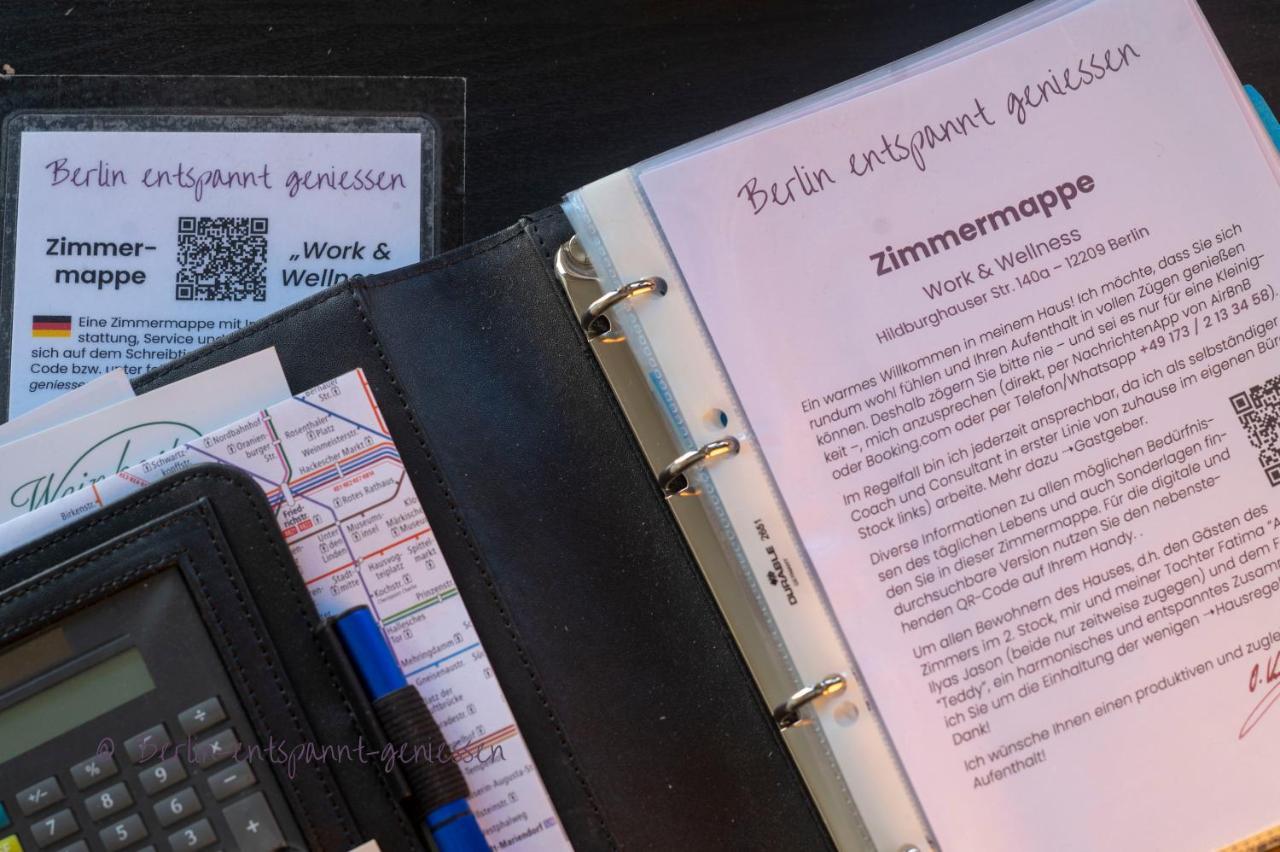 Berlin entspannt geniessen
Zimmer-
mappe
„Work &
Eine Zimmermappe mit
stattung, Service
sich auf dem
Code bzw. unter
geniesse
Berlin entspannt geniessen
Zimmermappe
Work & Wellness
Hildburghauser Str. 140a – 12209 Berlin
Ein warmes Willkommen in meinem Haus! Ich möchte, dass Sie sich
rundum wohl fühlen und Ihren Aufenthalt in vollen Zügen genießen
können. Deshalb zögern Sie bitte nie – und sei es nur für eine Kleinig-
keit –, mich anzusprechen (direkt, per NachrichtenApp von AirBnB
oder Booking.com oder per Telefon/Whatsapp +49 173 / 2 13 34 58).
Im Regelfall bin ich jederzeit ansprechbar, da ich als selbständiger
Coach und Consultant in erster Linie von zuhause im eigenen
Stock links) arbeite. Mehr dazu →Gastgeber.
Diverse Informationen zu allen möglichen Bedürfnis-
sen des täglichen Lebens und auch Sonderlagen fin-
den Sie in dieser Zimmermappe. Für die digitale und
durchsuchbare Version nutzen Sie den nebenste-
henden QR-Code auf Ihrem Handy. .
Um allen Bewohnern des Hauses, d.h. den Gästen des
Zimmers im 2. Stock, mir und meiner Tochter Fatima
Ilyas Jason (beide nur zeitweise zugegen) und dem
"Teddy", ein harmonisches und entspanntes
ich Sie um die Einhaltung der wenigen
Dank!
Ich wünsche Ihnen einen produktiven und
Aufenthalt!
DURABLE 2661
Bernauer
Str.
Nordbahnhof
Rosenthaler
Platz
Oranien-
burger
Str.
Weinmeisterstr.
Schwartz-
kopffstr.
Hackescher Markt
Birkenstr.
Rotes Rathaus
Fried-
richstr.
Unter
den
Linden
Museums-
insel
Märkisches
Museum
Stadt-
mitte
Hausvog-
teiplatz
Spittel-
markt
Kochstr.
Prinzenstr.
Hallesches
Tor
Mehringdamm
Gneisenaustr.
Platz der
Mariendorf
© Berlin-entspannt-geniessen
÷
%
×
+/-
8
9
−
7
5
6
3
+